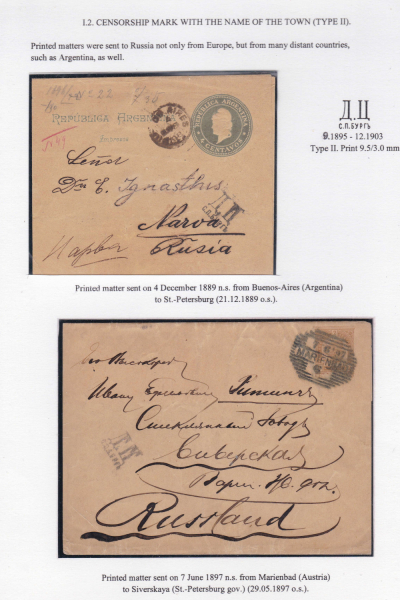 I.2. CENSORSHIP MARK WITH THE NAME OF THE TOWN (TYPE II).
Printed matters were sent to Russia not only from Europe, but from many distant countries,
such as Argentina, as well.
REPUBLICA ARGENTINA
CENTAVOS
Señor
Dn E. Ignasthus
Narva
Rusia
Нарва
Д.Ц
С.П.БУРГЪ
9.1895 - 12.1903
Type II. Print 9.5/3.0 mm
Printed matter sent on 4 December 1889 n.s. from Buenos-Aires (Argentina)
to St.-Petersburg (21.12.1889 o.s.).
MARIENBAD
Ивану
Сиверская
Варш. Ж. дор.
Russland
Printed matter sent on 7 June 1897 n.s. from Marienbad (Austria)
to Siverskaya (St.-Petersburg gov.) (29.05.1897 o.s.).